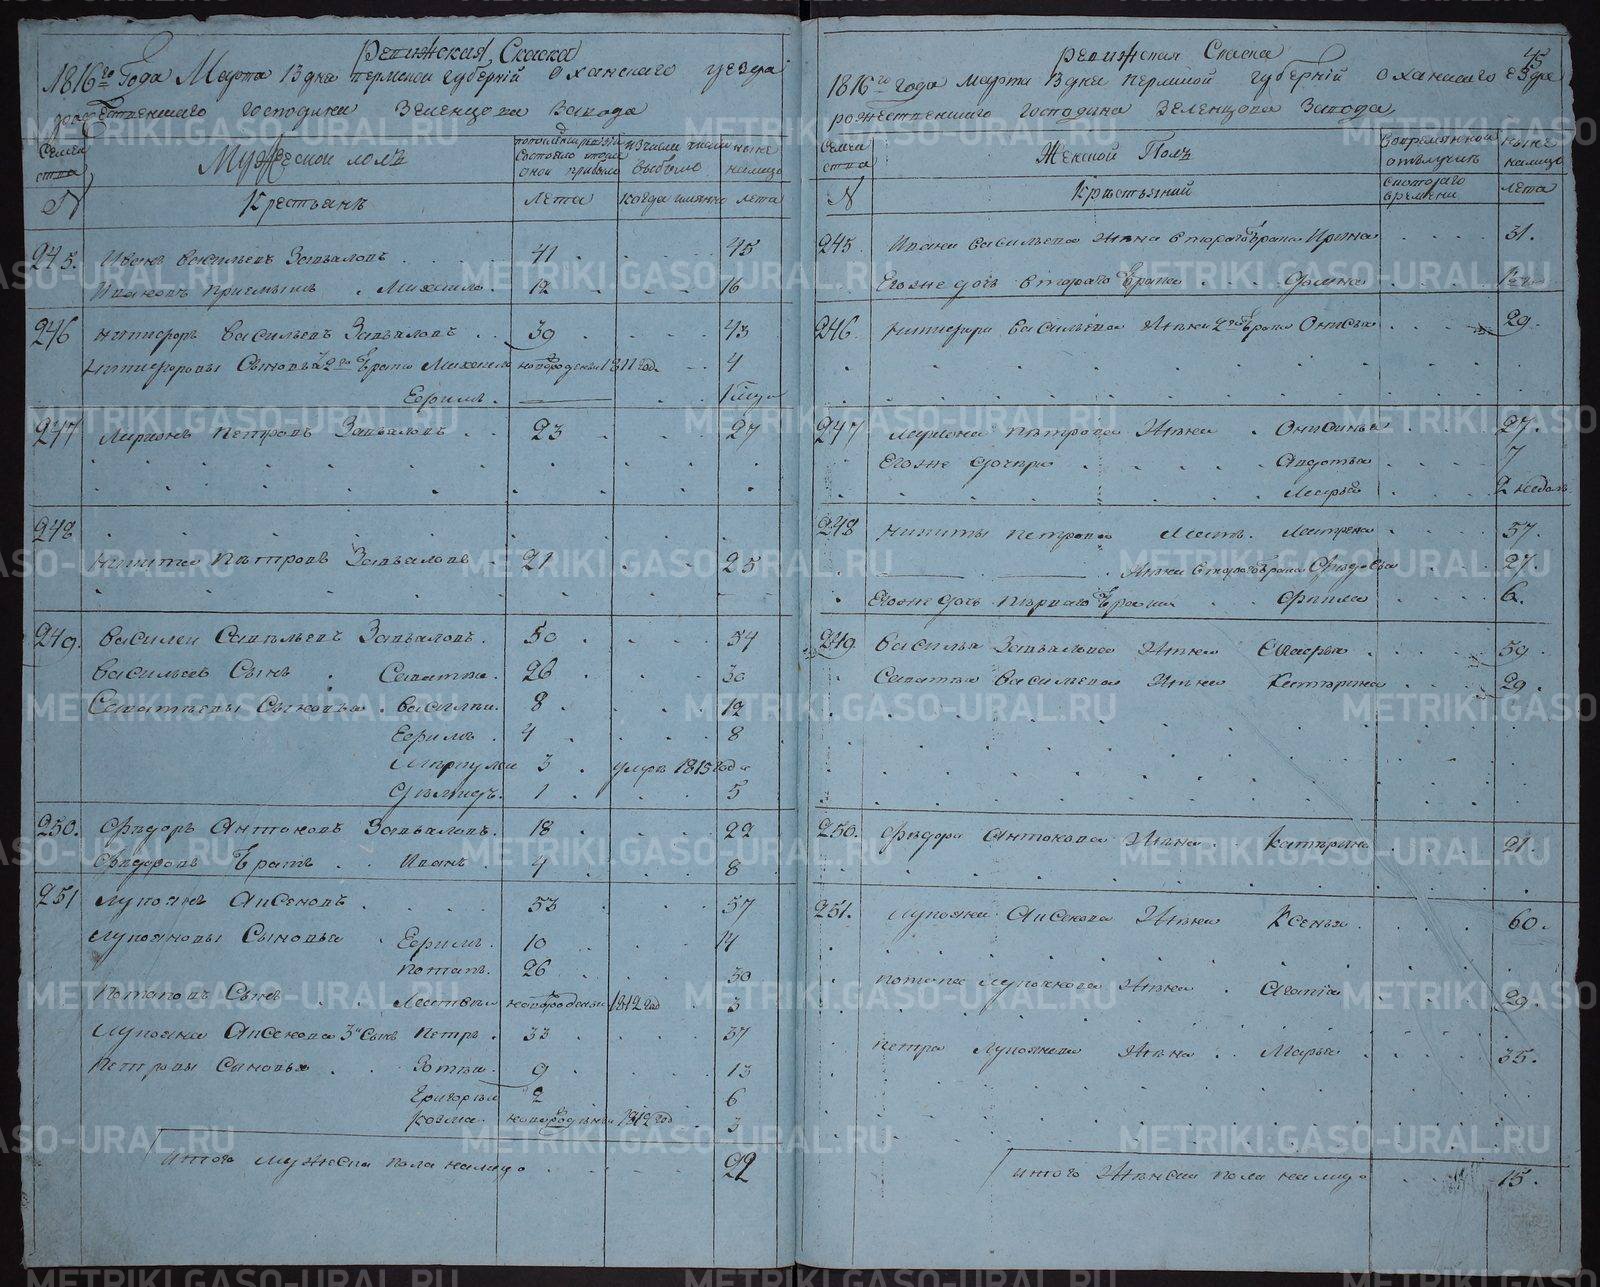 Ревижская Скаска
1816го Года Марта 13 дня пермской губернiй Оханскаго уезда
рождественскаго господина Зеленцова Завода
Семей
ства
Мужеской полъ
выбыло
ныне
налицо
N
Крестьянъ
Лета
когда имянно
лета
245. Иванъ Васильевъ Завьаловъ 41 45
Ивановъ приемышъ Михаило 12 16
246 Никифоръ Васильевъ Завьаловъ 39 43
Никифоровы Сыновья 2го брака Михаило новорожденъ 1811 год 4
Ефримъ
247 Ларионъ Петровъ Завьаловъ 23 27
248
Никита Петровъ Завьаловъ 21 25
249. Василеи Савельевъ Завьаловъ 50 54
Васильевъ Сынъ Саватеи 26 30
Саватьевы Сыновья Василеи 8 12
Ефримъ 4 8
Меркулеи 3 умре 1815 года
Демидъ 1 5
250. Федоръ Антоновъ Завьаловъ 18 22
Федоровъ Братъ Иванъ 4 8
251 Лупоянъ Аксеновъ 53 57
Лупояновы Сыновья Ефримъ 10 14
Потапъ 26 30
Потаповъ Сынъ новорожденъ 1812 год 3
Лупояна Аксенова 3й Сынъ Петръ 33 37
Петровы Сыновья Зотеи 9 13
Григореи 2 6
Козма новорожденъ 1812 год 3
Итого мужеска пола налицо 22
45
Ревижская Скаска
1816го года марта 13 дня пермской губернiй оханскаго уезда
рожественскаго господина Зеленцова Завода
Семей
ства
Женской Полъ
Во временной
отлучке
ныне
налицо
N
Крестьянки
Скотораго
времени
лета
245 Ивана Васильева Жена втораго брака Ирина 31.
Егоже дочь втораго брака Домна
246 Никифора Васильева Жена 2го брака Онисья 29
247 Лариона Петрова Жена Онисинья 27.
Егоже дочери Авдотья 7
Марфа 2 недель
248 Никиты Петрова Мать Матрена 57.
Жена втораго брака Федосья 27.
Егоже дочь перваго брака Фекла 6.
249 Василья Завьалова Жена Марфа 59
Саватья Васильева Жена Катерина 29
250. Федора Антонова Жена Катерина 21.
251. Лупояна Аксенова Жена Ксенья 60.
Потапа Лупоянова Жена Агапiа 29.
Петра Лупоянова Жена Марья 35.
Итого Женска пола налицо 15.
METRIKI.GASO-URAL.RU